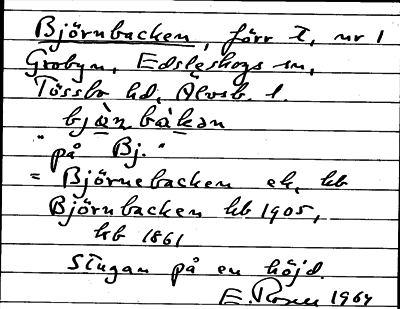 Björnbacken, förr t, nr 1
Grobyn, Edsleskogs sn,
Tössbo hd, Älvsb. l.
bjὰ̠n bὰkan
"på Bj."
= Björnebacken ek, kb
Björnbacken kb 1905,
kb 1861
Stugan på en höjd.
E. Rosen 1964